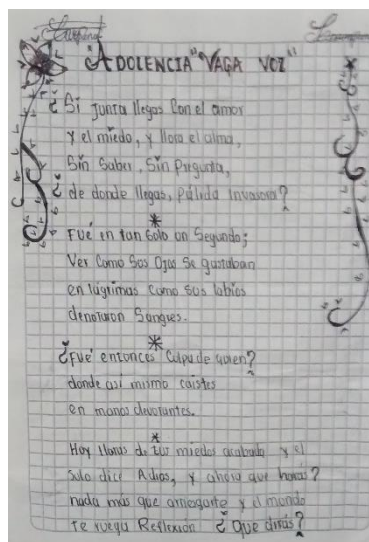 "ADOLENCIA "VAGA VOZ"
¿Si Junta llegas Con el amor
y el miedo, y llora el alma,
Sin Saber, Sin Pregunta,
¿de donde llegas, Pálida Invasora?
*
Fué in tan Solo un Segundo;
Ver Como Sos Ojos Se gastaban
en lágrimas Como sus labios
denotaron Sangres.
*
¿Fué entonces Culpa de quien?
donde asi mismo caistes
en manos devorantes.
*
Hoy lloras de tus miedos acabada y el
solo dice Adios, y ahora que harás?
nada más que arriesgarte y el mundo
te ruega Reflexión ¿Que dirás?